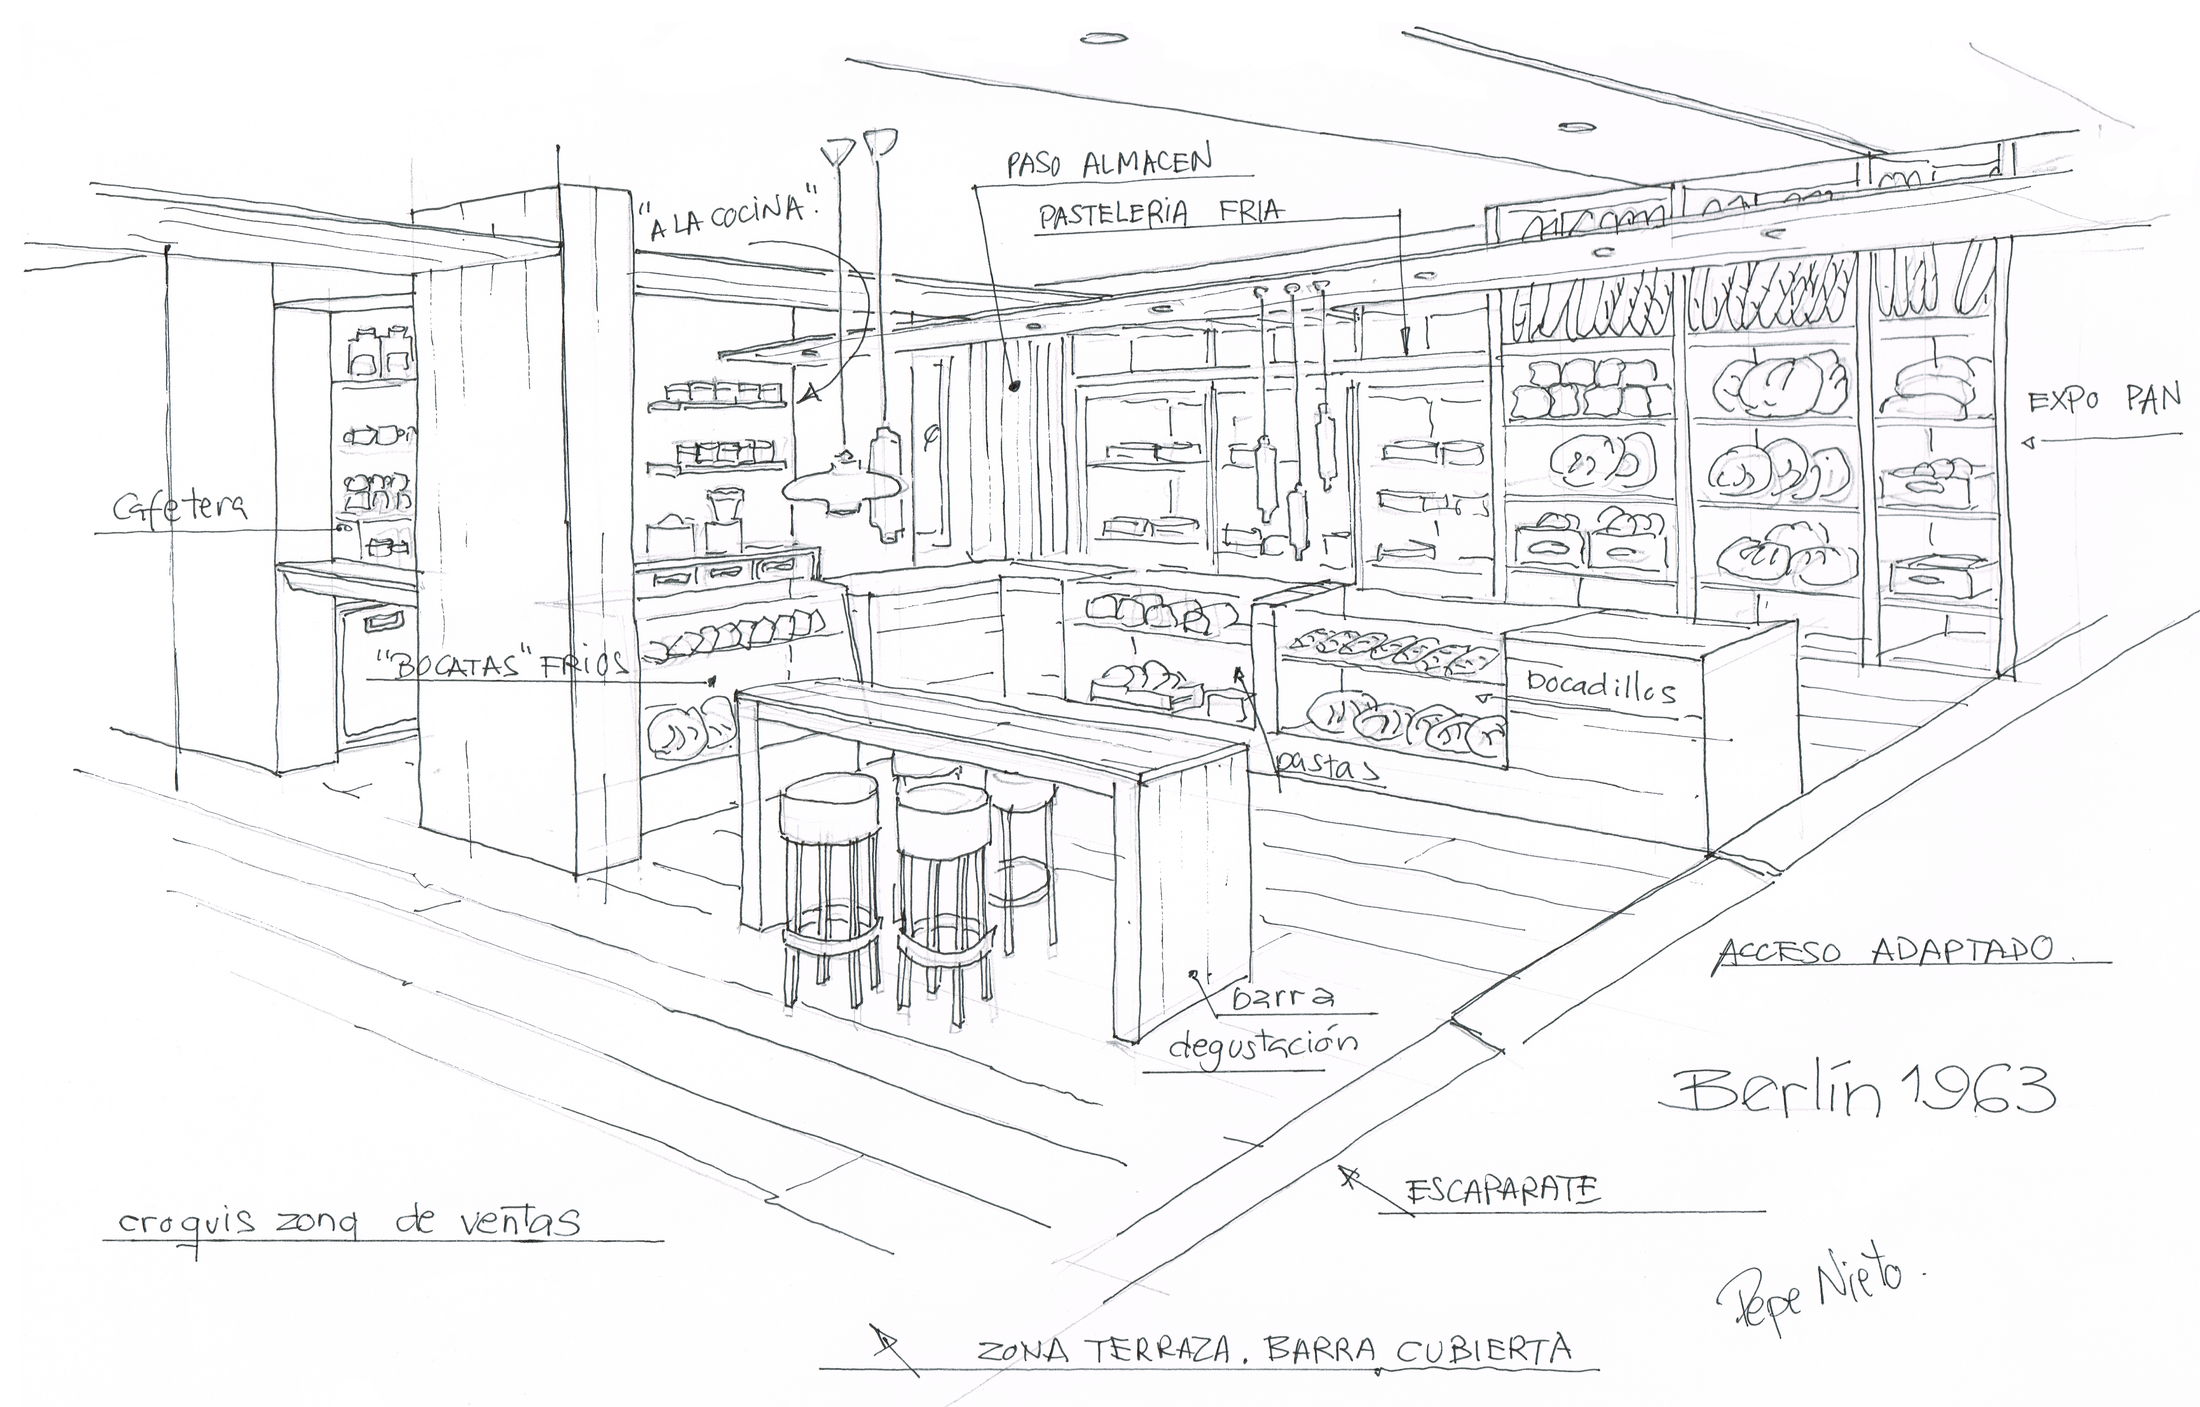 PASO ALMACEN
"A LA COCINA".
PASTELERIA FRIA
EXPO PAN
Cafetera
"BOCATAS" FRIOS
bocadillos
pastas
ACCESO ADAPTADO.
barra
degustación
Berlín 1963
ESCAPARATE
croquis zona de ventas
Pepe Nieto.
ZONA TERRAZA. BARRA CUBIERTA